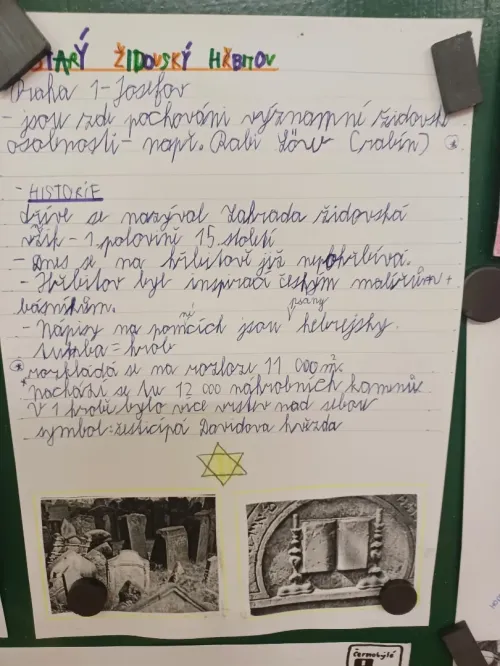 STARÝ ŽIDOVSKÝ HŘBITOV
Praha 1 - Josefov
- jsou zde pochováni významní židovské
osobnosti - např. Rabi Löw (rabín)
- HISTORIE
dříve se nazýval Zahrada židovská
vznik - 1. polovině 15. století
- Dnes se na hřbitově již nepohřbívá.
- Hřbitov byl inspirací českým malířům +
básníkům.
psány
- Nápisy na pomnících jsou hebrejsky.
tumba = hrob
rozkládá se na rozloze 11 000 m².
nachází se tu 12 000 náhrobních kamenů
V 1 hrobě bylo více vrstev nad sebou
symbol = šesticípá Davidova hvězda
černobýlé